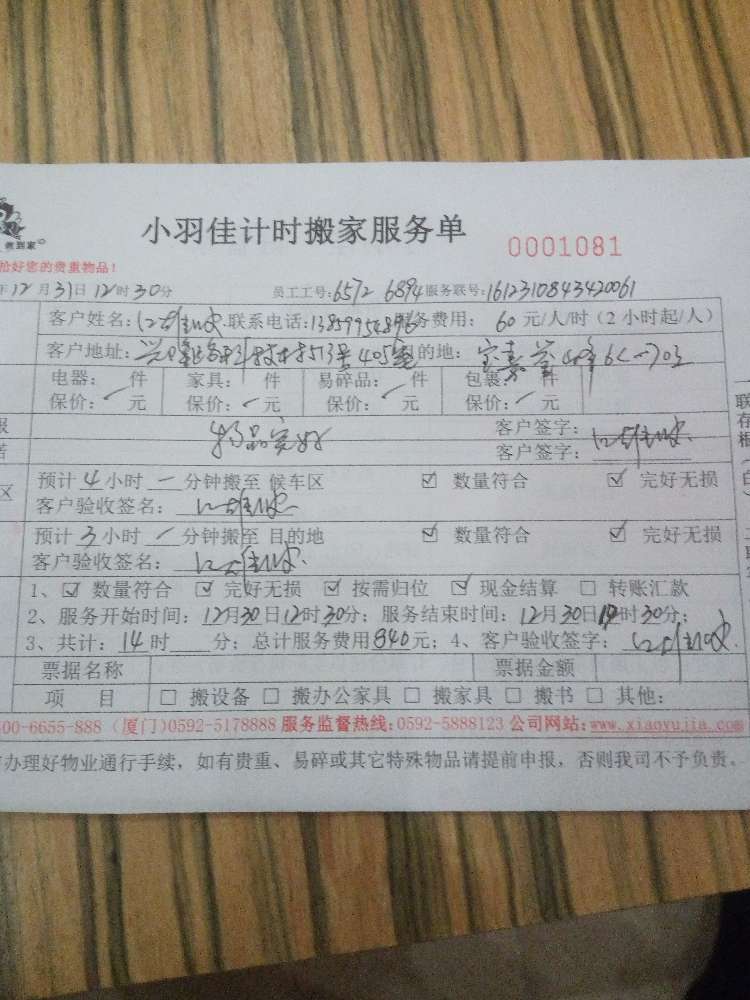 小羽佳计时搬家服务单
0001081
做到家
拾好您的贵重物品!
年12月31日12时30分 员工工号:6572 6894 服务联号:1612310843420061
客户姓名: 联系电话: 服务费用: 60元/人/时(2小时起/人)
客户地址: 513号405 目的地:
电器: 件 家具: 件 易碎品: 件 包裹: 件
保价: 元 保价: 元 保价: 元 保价: 元
物品完好
客户签字:
客户签字:
预计4小时 分钟搬至 候车区 ☑ 数量符合 ☑ 完好无损
客户验收签名:
预计3小时 分钟搬至 目的地 ☑ 数量符合 ☑ 完好无损
客户验收签名:
1、☑ 数量符合 ☑ 完好无损 ☑ 按需归位 ☑ 现金结算 □ 转账汇款
2、服务开始时间: 12月30日12时30分; 服务结束时间: 12月30日 时30分;
3、共计: 14时 分; 总计服务费用840元; 4、客户验收签字:
票据名称 票据金额
项 目 □ 搬设备 □ 搬办公家具 □ 搬家具 □ 搬书 □ 其他:
00-6655-888 (厦门)0592-5178888 服务监督热线:0592-5888123 公司网站:www.xiaoyujia.com
办理好物业通行手续,如有贵重、易碎或其它特殊物品请提前申报,否则我司不予负责。
区
联
存
根